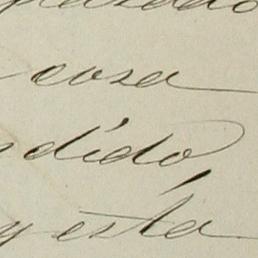 cosa
dido,
y esta